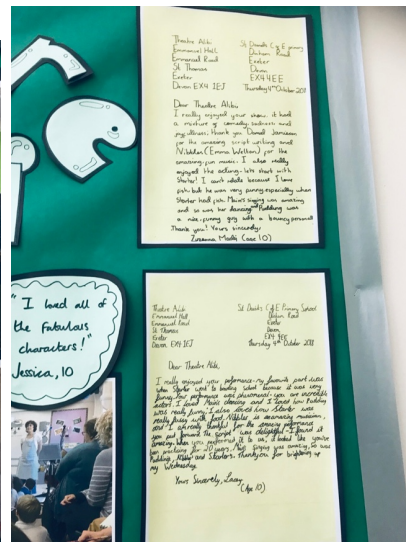 Theatre Alibi
Emmanuel Hall
Emmanuel Road
St. Thomas
Exeter
Devon EX4 1EJ
St Davids C of E primary
Dinham Road
Exeter
Devon
EX4 4EE
Thursday 4th October 2011
Dear Theatre Alibi,
I really enjoyed your show. It had
a mixture of comedy, sadness and
joyfullness; thank you Daniel Jamieson
for the amazing script writing and
Nibbles (Emma Welton) for the
amazing, fun music. I also really
enjoyed the acting - lets start with
Starter! I can't relate because I love
fish but he was very funny especially when
Starter had fish. Main's singing was amazing
and so was her dancing and Pudding was
a nice, funny guy with a bouncy personal
Thank you! Yours sincerely,
(age 10)
"I loved all of
the fabulous
characters!"
Jessica, 10
Theatre Alibi
Emmanuel Hall
Emmanuel Road
St Thomas
Exeter
Devon EX4 1EJ
St Davids C of E Primary School
Dinham Road
Exeter
Devon
EX4 4EE
Thursday 4th October 2011
Dear Theatre Alibi,
I really enjoyed your peformance. My favorite part was
when Starter went to boarding school because it was very
funny. Your performance was phenomenal - you are incredible
actors. I loved Main's dancing and I loved how Pudding
was really funny; I also loved how Starter was
really fussy with food. Nibbles is amazing musician,
and I am really thankful for the amazing peformance
you put forward. The script was delightful - I found it
amazing. When you performed it to us, it looked like you've
been practicing for 20 years. Main's singing was amazing, so was
Pudding, Nibbles and Starters. Thankyou for brightening up
my Wednesday.
Yours Sincerely, Lacey
(Age 10)